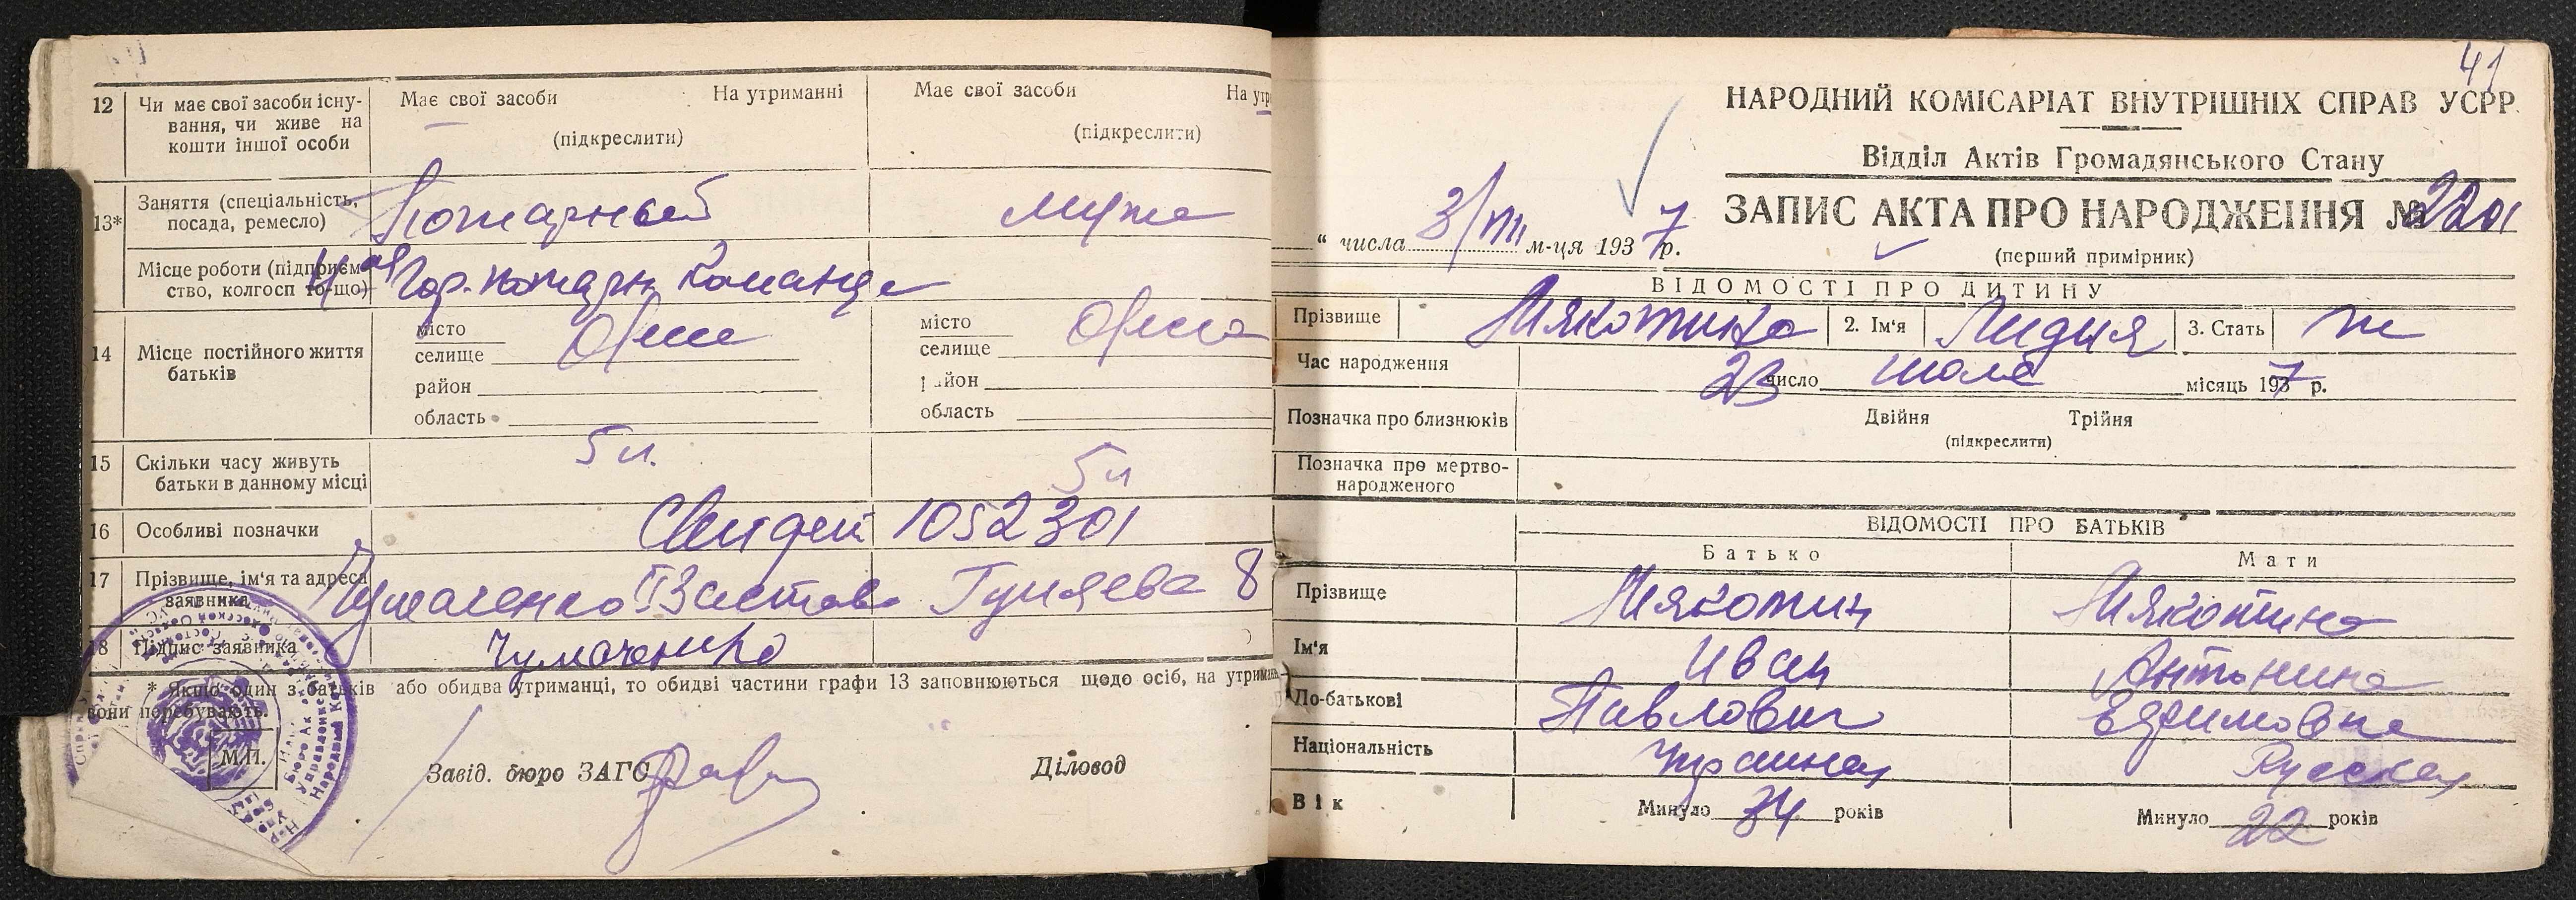 12 Чи має свої засоби існу-
вання, чи живе на
кошти іншої особи
Має свої засоби На утриманні
(підкреслити)
Має свої засоби На утр
(підкреслити)
13* Заняття (спеціальність,
посада, ремесло)
Пожарный
мужа
Місце роботи (підприєм-
ство, колгосп то-що)
Гор. пожарн команде
14 Місце постійного життя
батьків
місто
селище Одесса
район
область
місто
селище Одесса
район
область
15 Скільки часу живуть
батьки в данному місці
5 л. 5 л
16 Особливі позначки
Свидет 1052301
17 Прізвище, ім'я та адреса
заявника
Чумаченко Густав Гуляева 8
18 Підпис заявника
Чумаченко
* Якщо один з батьків або обидва утриманці, то обидві частини графи 13 заповнюються щодо осіб, на утриман-
вони перебувають.
М.П.
Завід. бюро ЗАГС Діловод
41
НАРОДНИЙ КОМІСАРІАТ ВНУТРІШНІХ СПРАВ УСРР
Відділ Актів Громадянського Стану
ЗАПИС АКТА ПРО НАРОДЖЕННЯ № 2201
" числа 3/VIII м-ця 1937 р.
(перший примірник)
ВІДОМОСТІ ПРО ДИТИНУ
Прізвище Мякотина 2. Ім'я Лидия 3. Стать ж
Час народження 23 число июля місяць 1937 р.
Позначка про близнюків Двійня Трійня
(підкреслити)
Позначка про мертво-
народженого
ВІДОМОСТІ ПРО БАТЬКІВ
Батько Мати
Прізвище Мякотин Мякотина
Ім'я Иван Антонина
По-батькові Павлович Ефимовна
Національність Украинец Русская
Вік Минуло 34 років Минуло 22 років